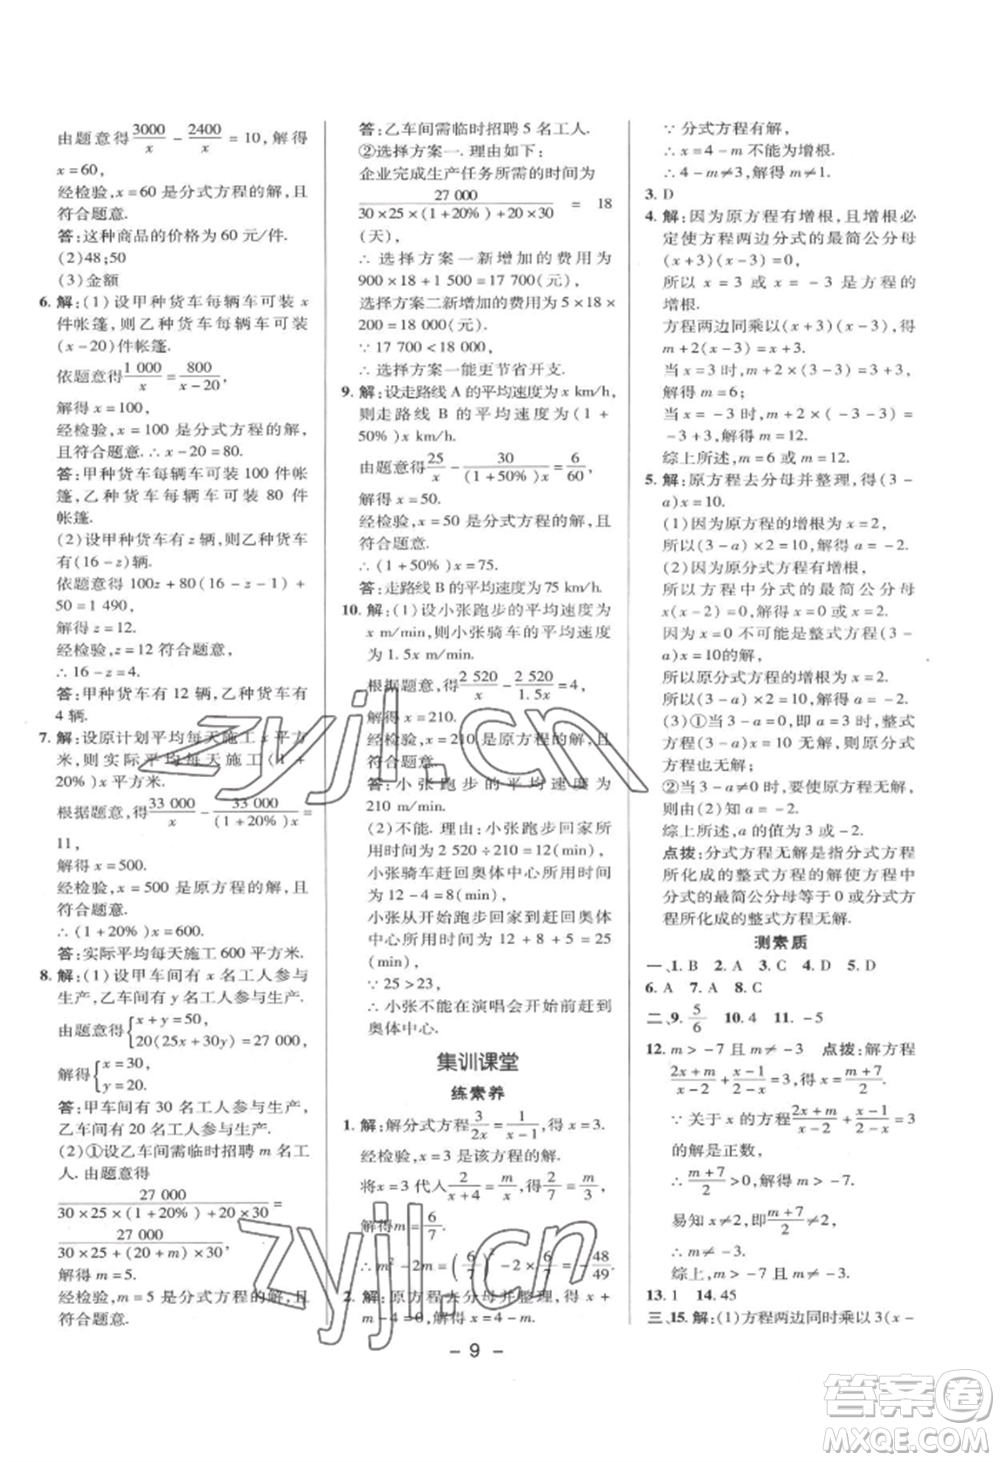 由题意得3000/x − 2400/x = 10, 解得
x=60,
经检验, x=60 是分式方程的解,且
符合题意.
答:这种商品的价格为 60 元/件.
(2)48;50
(3)金额
6. 解:(1)设甲种货车每辆车可装 x
件帐篷,则乙种货车每辆车可装
(x−20)件帐篷.
依题意得1 000/x = 800/(x−20),
解得 x=100,
经检验,x=100 是分式方程的解,
且符合题意.∴x−20=80.
答:甲种货车每辆车可装 100 件帐
篷,乙种货车每辆车可装 80 件
帐篷.
(2)设甲种货车有 z 辆,则乙种货车
有(16−z)辆.
依题意得 100z+80(16−z−1)+
50=1 490,
解得 z=12.
经检验,z=12 符合题意.
∴16−z=4.
答:甲种货车有 12 辆,乙种货车有
4 辆.
7. 解:设原计划平均每天施工 x 平方
米,则实际平均每天施工(1+
20%)x 平方米.
根据题意,得33 000/x − 33 000/(1+20%)x =
11,
解得 x=500.
经检验,x=500 是原方程的解,且
符合题意.
∴(1+20%)x=600.
答:实际平均每天施工 600 平方米.
8. 解:(1)设甲车间有 x 名工人参与
生产,乙车间有 y 名工人参与生产.
由题意得{x+y=50, 20(25x+30y)=27 000,
解得{x=30, y=20.
答:甲车间有 30 名工人参与生产,
乙车间有 20 名工人参与生产.
(2)①设乙车间需临时招聘 m 名工
人.由题意得
27 000/(30×25×(1+20%)+20×30) =
27 000/(30×25+(20+m)×30),
解得 m=5.
经检验,m=5 是分式方程的解,且
符合题意.
答:乙车间需临时招聘 5 名工人.
②选择方案一. 理由如下:
企业完成生产任务所需的时间为
27 000/(30×25×(1+20%)+20×30) = 18
(天),
∴选择方案一新增加的费用为
900×18+1 500=17 700(元).
选择方案二新增加的费用为 5×18×
200=18 000(元).
∵17 700<18 000,
∴选择方案一能更节省开支.
9. 解:设走路线 A 的平均速度为 x km/h,
则走路线 B 的平均速度为(1+
50%)x km/h.
由题意得25/x − 30/(1+50%)x = 6/60,
解得 x=50.
经检验,x=50 是分式方程的解,且
符合题意.
∴(1+50%)x=75.
答:走路线 B 的平均速度为 75 km/h.
10. 解:(1)设小张跑步的平均速度为
x m/min,则小张骑车的平均速度
为 1.5x m/min.
根据题意,得2 520/x − 2 520/1.5x =4,
解得 x=210.
经检验,x=210 是原方程的解,且
符合题意.
答:小张跑步的平均速度为
210 m/min.
(2)不能. 理由:小张跑步回家所
用时间为 2 520÷210=12(min),
小张骑车赶回奥体中心所用时间
为 12−4=8(min),
小张从开始跑步回家到赶回奥体
中心所用时间为 12+8+5=25
(min).
∵25>23,
∴小张不能在演唱会开始前赶到
奥体中心.
集训课堂
练素养
1. 解:解分式方程3/2x = 1/(x−1),得 x=3.
经检验,x=3 是该方程的解.
将 x=3 代入2/(x+4) = m/x,得2/7 = m/3,
解得 m=6/7.
∴m²−2m=(6/7)²−2×6/7=−48/49.
2. 解:原方程去分母并整理,得 x+
m−4=0,解得 x=4−m.
∵分式方程有解,
∴x=4−m 不能为增根.
∴4−m≠3,解得 m≠1.
3. D
4. 解:因为原方程有增根,且增根必
定使方程两边分式的最简公分母
(x+3)(x−3)=0,
所以 x=3 或 x=−3 是方程的
增根.
方程两边同乘以(x+3)(x−3),得
m+2(x−3)=x+3.
当 x=3 时,m+2×(3−3)=3+3,
解得 m=6;
当 x=−3 时,m+2×(−3−3)=
−3+3,解得 m=12.
综上所述,m=6 或 m=12.
5. 解:原方程去分母并整理,得(3−
a)x=10.
(1)因为原方程的增根为 x=2,
所以(3−a)×2=10,解得 a=−2.
(2)因为原分式方程有增根,
所以方程中分式的最简公分母
x(x−2)=0,解得 x=0 或 x=2.
因为 x=0 不可能是整式方程(3−
a)x=10的解,
所以原分式方程的增根为 x=2.
所以(3−a)×2=10,解得 a=−2.
(3)①当 3−a=0,即 a=3 时,整式
方程无解,则原分式方程也无解;
②当 3−a≠0 时,要使原方程无解,
则由(2)知 a=−2.
综上所述,a 的值为 3 或−2.
点拨:分式方程无解是指分式方程
所化成的整式方程的解使方程中
分式的最简公分母等于 0 或分式方
程所化成的整式方程无解.
测素质
一、1. B 2. A 3. C 4. D 5. D
6. A 7. A 8. C
二、9. 5/6 10. 4 11. −5
12. m>−7 且 m≠−3 点拨:解方程
(2x+m)/(x−2) + (x−1)/(2−x) =3,得 x=(m+7)/2.
∵关于 x 的方程(2x+m)/(x−2) + (x−1)/(2−x) =3
的解是正数,
∴(m+7)/2>0,解得 m>−7.
易知 x≠2,即(m+7)/2≠2,
∴m≠−3.
综上,m>−7 且 m≠−3.
13. 1 14. 45
三、15. 解:(1)方程两边同时乘以 3(x−
− 9 −
zyjl.cn
zyjl.cn
答案圈
MXQE.COM